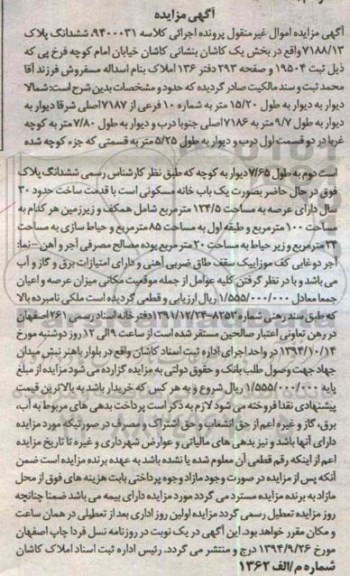 آگهی مزایده
آگهی مزایده اموال غیرمنقول پرونده اجرائی کلاسه ۹۴۰۰۰۳۱، ششدانگ پلاک
۷۱۸۸/۱۳ واقع در بخش یک کاشان بنشانی کاشان خیابان امام کوچه فرخ پی که
ذیل ثبت ۱۹۵۰۴ و صفحه ۲۹۳ دفتر ۱۳۶ املاک بنام اسداله مسفروش فرزند آقا
محمد ثبت و سند مالکیت صادر گردیده که حدود و مشخصات بدین شرح است: شمالا
دیوار به دیوار به طول ۱۵/۲۰ متر به شماره ۱۰ فرعی از ۷۱۸۷ اصلی شرقا دیوار به
دیوار به طول ۹/۷ متر به ۷۱۸۶ اصلی جنوبا درب و دیوار به طول ۷/۸۰ متر به کوچه
غربا در دو قسمت اول درب و دیوار به طول ۵/۲۵ متر به قسمتی که جزء کوچه شده
است دوم به طول ۷/۶۵ دیوار به کوچه که طبق نظر کارشناس رسمی ششدانگ پلاک
فوق در حال حاضر بصورت یک باب خانه مسکونی است با قدمت ساخت حدود ۳۰
سال دارای عرصه به مساحت ۱۳۴/۵ مترمربع شامل همکف و زیرزمین هر کدام به
مساحت ۱۰۰ مترمربع و طبقه اول به مساحت ۸۵ مترمربع و حیاط سازی به مساحت
۳۴ مترمربع و زیر حیاط به مساحت ۲۰ مترمربع بوده مصالح مصرفی آجر و آهن - نما:
آجر دوغابی کف موزاییک سقف طاق ضربی آهنی و دارای امتیازات برق و گاز و آب
می باشد و با در نظر گرفتن کلیه عوامل از جمله موقعیت مکانی میزان عرصه و اعیان
جمعا معادل ۱/۵۵۵/۰۰۰/۰۰۰ ریال ارزیابی و قطعی گردیده است ملکی نامبرده بالا
که طبق سند رهنی شماره ۸۲۵۳-۱۳۹۱/۱۲/۲۴ دفترخانه اسناد رسمی ۲۶۱ اصفهان
در رهن تعاونی اعتبار صالحین مستقر شده است از ساعت ۹ الی ۱۲ روز دوشنبه مورخ
۱۳۹۴/۱۰/۱۴ در واحد اجرای اداره ثبت اسناد کاشان واقع در بلوار باهنر نبش میدان
جهاد جهت وصول طلب بانک و حقوق دولتی به مزایده گزارده می شود مزایده از مبلغ
پایه ۱/۵۵۵/۰۰۰/۰۰۰ ریال شروع و به هر کس که خریدار باشد به بالاترین قیمت
پیشنهادی نقدا فروخته می شود لازم به ذکر است پرداخت بدهی های مربوطه به آب،
برق، گاز و غیره اعم از حق انشعاب و حق اشتراک و مصرف در صورتیکه مورد مزایده
دارای آنها باشد و نیز بدهی های مالیاتی و عوارض شهرداری و غیره تا تاریخ مزایده
اعم از اینکه رقم قطعی آن معلوم شده یا نشده باشد به عهده برنده مزایده است ضمن
آنکه پس از مزایده در صورت وجود مازاد وجوه پرداختی بابت هزینه های فوق از محل
مازاد به برنده مزایده مسترد می گردد مورد مزایده دارای بیمه می باشد ضمنا چنانچه
روز مزایده تعطیل رسمی گردد مزایده اولین روز اداری بعد از تعطیلی در همان ساعت
و مکان مقرر خواهد بود. این آگهی در یک نوبت در روزنامه نسل فردا چاپ اصفهان
مورخ ۱۳۹۴/۹/۲۶ درج و منتشر می گردد. رئیس اداره ثبت اسناد املاک کاشان
شماره م/الف ۱۳۶۲